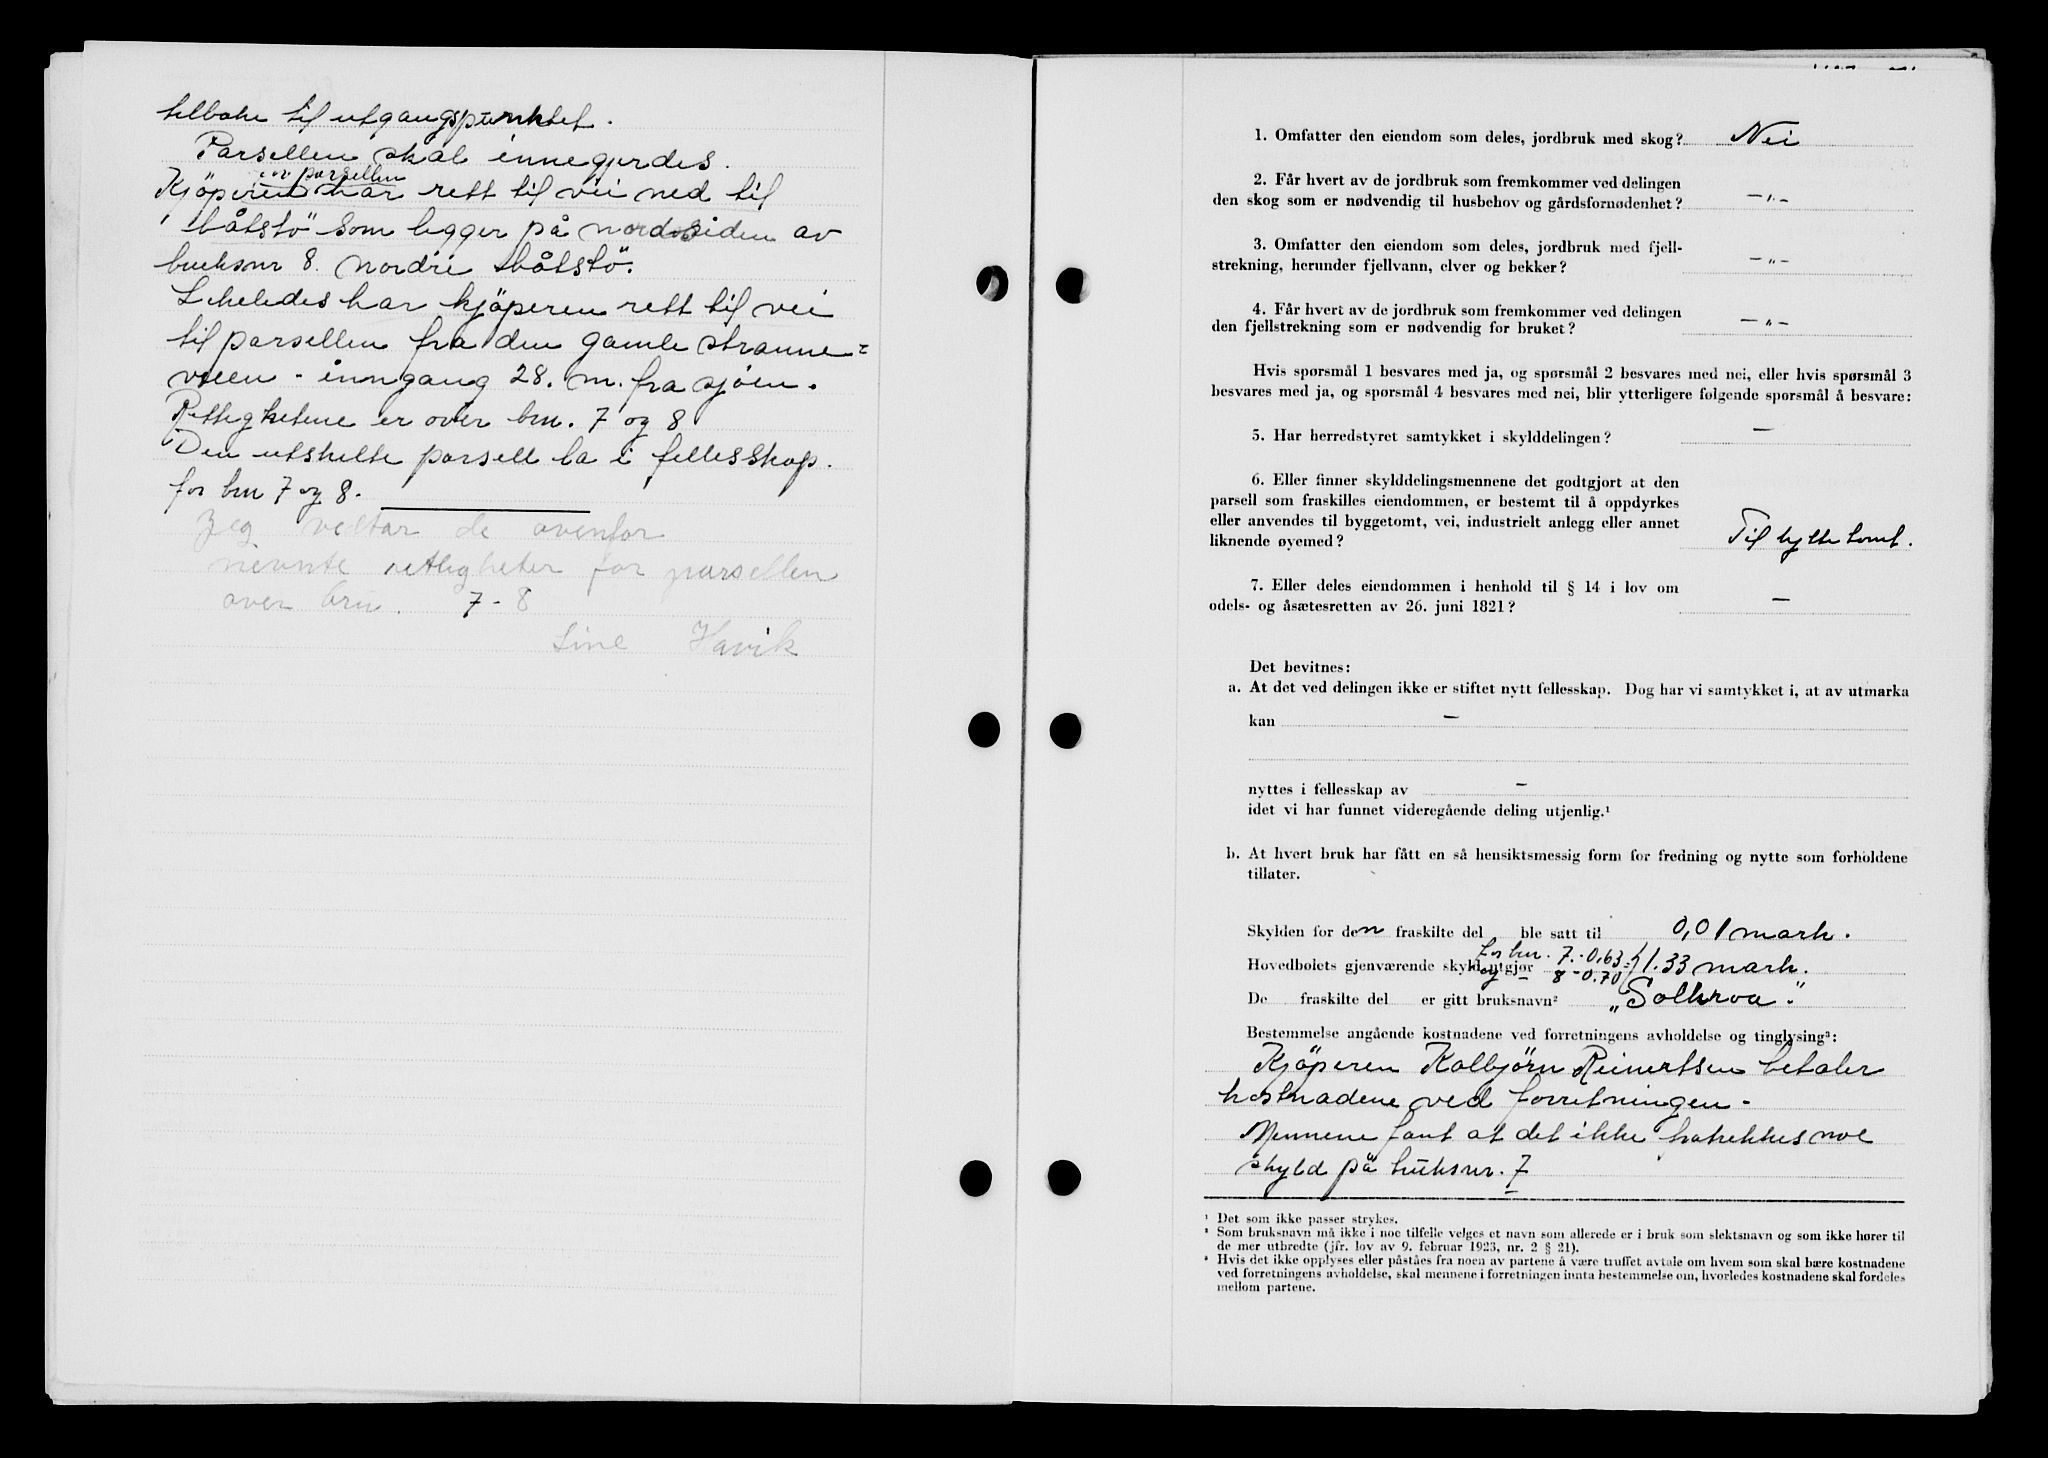 tilbake til utgangspunktet.
Parsellen skal innegjerdes.
av parsellen
Kjöperen har rett til vei ned til
båtstö som ligger på nordsiden av
bruksnr 8. nordre båtstö.
Likeledes har kjöperen rett til vei
til parsellen fra den gamle stranne=
veien - inngang 28. m. fra sjöen.
Rettighetene er over bnr. 7 og 8
Den utskilte parsell la i fellesskap.
for bnr 7 og 8.
Jeg vedtar de ovenfor
nevnte rettigheter for parsellen
over bnr. 7 - 8
Line Havik
1. Omfatter den eiendom som deles, jordbruk med skog? Nei
2. Får hvert av de jordbruk som fremkommer ved delingen
den skog som er nødvendig til husbehov og gårdsfornødenhet? —„—
3. Omfatter den eiendom som deles, jordbruk med fjell-
strekning, herunder fjellvann, elver og bekker? —„—
4. Får hvert av de jordbruk som fremkommer ved delingen
den fjellstrekning som er nødvendig for bruket? —„—
Hvis spørsmål 1 besvares med ja, og spørsmål 2 besvares med nei, eller hvis spørsmål 3
besvares med ja, og spørsmål 4 besvares med nei, blir ytterligere følgende spørsmål å besvare:
5. Har herredstyret samtykket i skylddelingen? —
6. Eller finner skylddelingsmennene det godtgjort at den
parsell som fraskilles eiendommen, er bestemt til å oppdyrkes
eller anvendes til byggetomt, vei, industrielt anlegg eller annet
liknende øyemed? Til hyttetomt.
7. Eller deles eiendommen i henhold til § 14 i lov om
odels- og åsætesretten av 26. juni 1821? —
Det bevitnes:
a. At det ved delingen ikke er stiftet nytt fellesskap. Dog har vi samtykket i, at av utmarka
kan —
nyttes i fellesskap av —
idet vi har funnet videregående deling utjenlig.¹
b. At hvert bruk har fått en så hensiktsmessig form for fredning og nytte som forholdene
tillater.
Skylden for den fraskilte del ble satt til 0,01 mark.
for bnr. 7.-0,63
Hovedbølets gjenværende skyld utgjør og 8-0.70 = 1.33 mark.
De fraskilte del er gitt bruksnavn² „Solkroa".
Bestemmelse angående kostnadene ved forretningens avholdelse og tinglysing³:
Kjöperen Kolbjørn Reinertsen betaler
kostnadene ved forretningen -
Mennene fant at det ikke fratrekkes noe
skyld på bruksnr. 7
¹ Det som ikke passer strykes.
² Som bruksnavn må ikke i noe tilfelle velges et navn som allerede er i bruk som slektsnavn og som ikke hører til
de mer utbredte (jfr. lov av 9. februar 1923, nr. 2 § 21).
³ Hvis det ikke opplyses eller påståes fra noen av partene å være truffet avtale om hvem som skal bære kostnadene
ved forretningens avholdelse, skal mennene i forretningen innta bestemmelse om, hvorledes kostnadene skal fordeles
mellom partene.